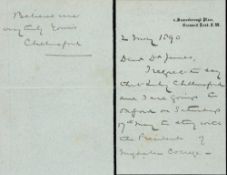 Believe me
very truly yours
Chelmsford
2 May 1890
Dear Dr James,
I regret to say
that Lady Chelmsford
and I are going to
Oxford on Saturday
May to stay with
the President of
Magdalen College -